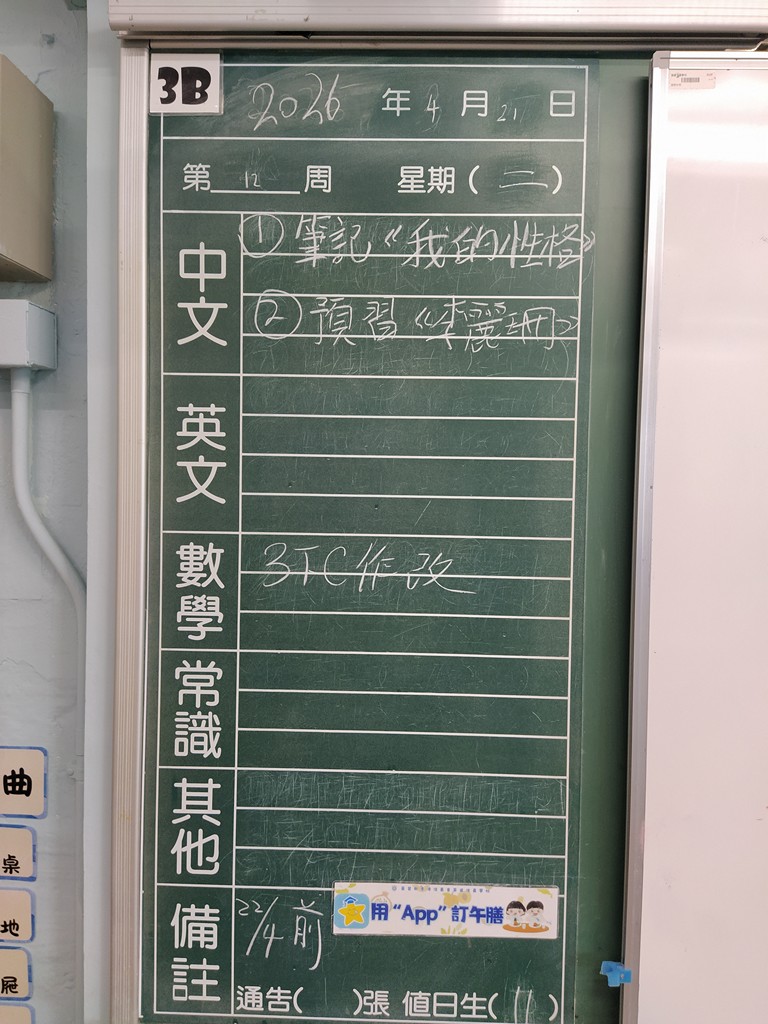 3B
2026 年 4 月 21 日
第 12 周 星期( 二 )
中文
① 筆記《我的性格》
② 預習《李麗珊》
英文
數學
3下C 作改
常識
其他
備註
22/4 前
用“App”訂午膳
通告( )張 值日生( 11 )
曲
桌
地